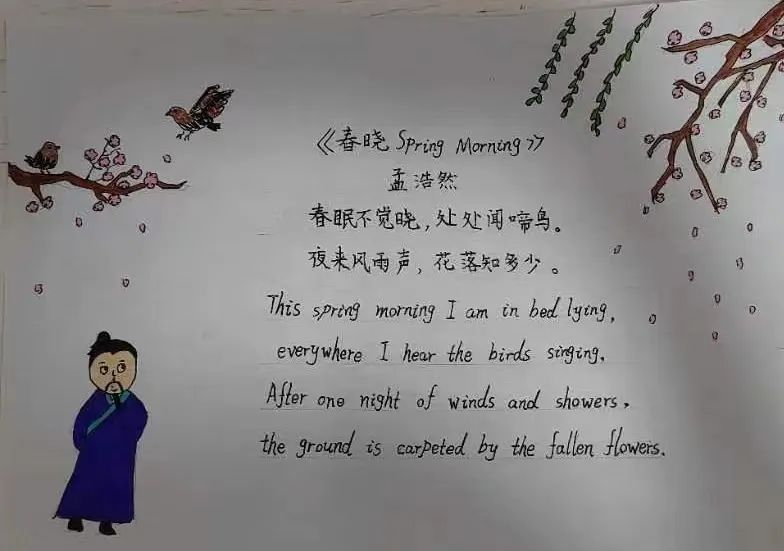 《春晓 Spring Morning》
孟浩然
春眠不觉晓，处处闻啼鸟。
夜来风雨声，花落知多少。
This spring morning I am in bed lying,
everywhere I hear the birds singing.
After one night of winds and showers,
the ground is carpeted by the fallen flowers.